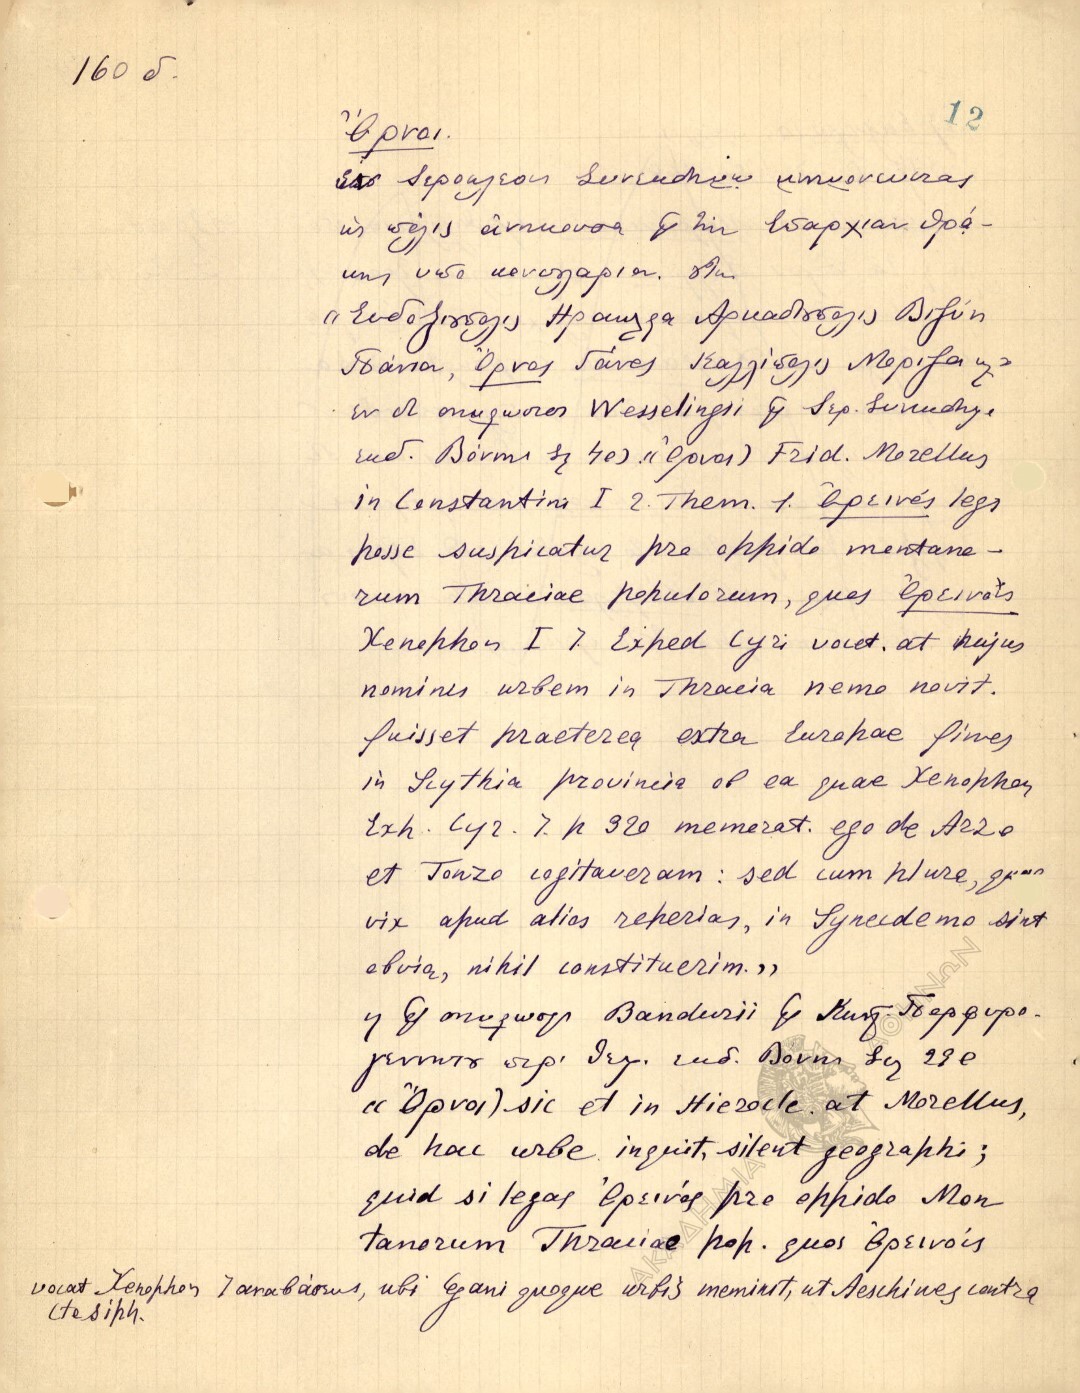 160 δ.
12
Ὄρνοι.
Ἱεροκλέους Συνεκδήμῳ μνημονεύεται
ὡς πόλις ἀνήκουσα εἰς τὴν Ἐπαρχίαν Θρά-
κης ὑπὸ κονσουλάριον.
« Εὐδοξιόπολις Ἡράκλεια Ἀρκαδιόπολις Βιζύη
Πάνιον, Ὄρνος Γάνος Καλλίπολις Μόριζα
ἐν δὲ σημειώσεσι Wesselingii εἰς Ἱερ. Συνέκδημ.
ἐκδ. Βόννης σελ 403 «Ὄρνοι) Frid. Morellus
in Constantini I 2. Them. 1. Ὀρεινός legi
posse suspicatur pro oppido montano-
rum Thraciae populorum, quos Ὀρεινοὺς
Xenophon I 7. Exped Cyri vocet. at hujus
nominis urbem in Thracia nemo novit.
fuisset praeterea extra Europae fines
in Scythia provincia ob ea quae Xenophon
Exp. Cyr. 7. p 320 memorat. ego de Arzo
et Tonzo cogitaveram: sed cum plura, quae
vix apud alios reperias, in Synecdemo sint
obvia, nihil constituerim.»
εἰς σημειώσεις Bandurii εἰς Κωνστ. Πορφυρο-
γεννήτου περὶ Θεμ. ἐκδ. Βόννης Σελ 290
« Ὄρνοι) sic et in Hierocle. at Morellus,
de hac urbe inquit, silent geographi;
quid si legas Ὀρεινός pro oppido Mon
tanorum Thraciae pop. quos Ὀρεινοὺς
vocat Xenophon 7 ἀναβάσεως, ubi Gani quoque urbis meminit, ut Aeschines contra
Ctesiph.
ΑΚΑΔΗΜΙΑ ΑΘΗΝΩΝ